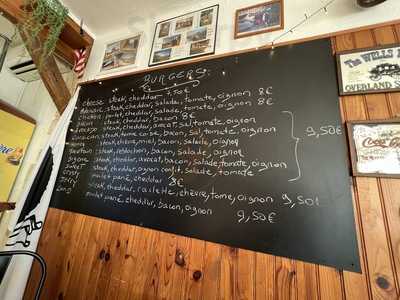 BURGERS:
Cheese steak, cheddar 7,50€
steak, cheddar, salade, tomate, oignon 8€
poulet, cheddar, salade, tomate, oignon 8€
Bacon steak, cheddar, bacon 8€
steak, cheddar, avocat, salade, tomate, oignon
steak, tome corse, bacon, sal, tomate, oignon
steak, chèvre, miel, bacon, salade, oignon
steak, reblochon, bacon, salade, oignon 9,50€
steak, cheddar, avocat, bacon, salade, tomate, oignon
Sweet steak, cheddar, oignon confit, salade, tomate
Crispy poulet pané, cheddar 8€
steak, cheddar, raclette, chèvre, tome, oignon 9,50€
poulet pané, cheddar, bacon, oignon 9,50€
The Wells
OVERLAND
Coca